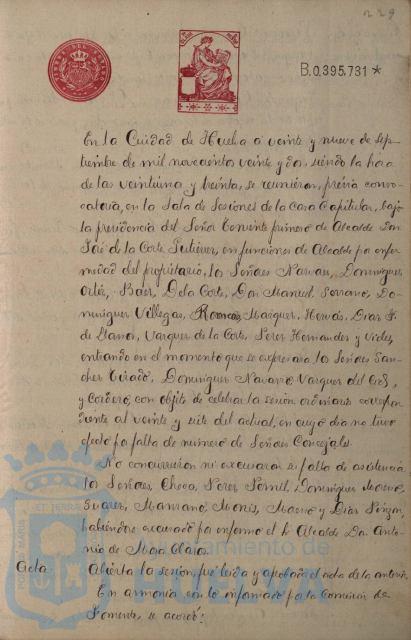 229
B.0.395.731 *
En la Ciudad de Huelva a veinte y nueve de sep-
tiembre de mil novecientos veinte y dos, siendo la hora
de las veintiuna y treinta, se reunieron, previa convo-
catoria, en la Sala de Sesiones de la Casa Capitular, bajo
la presidencia del Señor Teniente primero de Alcalde Don
José de la Corte Gutiérrez, en funciones de Alcalde por enfer-
medad del propietario, los Señores Narváez, Domínguez
Ortiz, Báez, De la Corte, Don Manuel Serrano, Do-
mínguez Villegas, Márquez, Hervás, Díaz F.
de Llanos, Vázquez de la Corte, Pérez Hernández y Vides,
entrando en el momento que se expresará los Señores Sán-
chez Tirado, Domínguez Navarro, Vázquez del
y Cordero, con objeto de celebrar la sesión ordinaria correspon-
diente al veinte y siete del actual, en cuyo día no tuvo
efecto por falta de número de Señores Concejales.
No concurrieron ni excusaron su falta de asistencia
los Señores, Pérez Domínguez
Suárez, Manzano, Moreno y Díaz Pinzón,
habiéndose excusado por enfermo el Sr. Alcalde Don Anto-
nio de Mora Claros.
Acta Abierta la sesión, fué leída y aprobada el acta de la anterior.
En armonía con lo informado por la Comisión de
Fomento, se acordó:
Ayuntamiento de
HUELVA